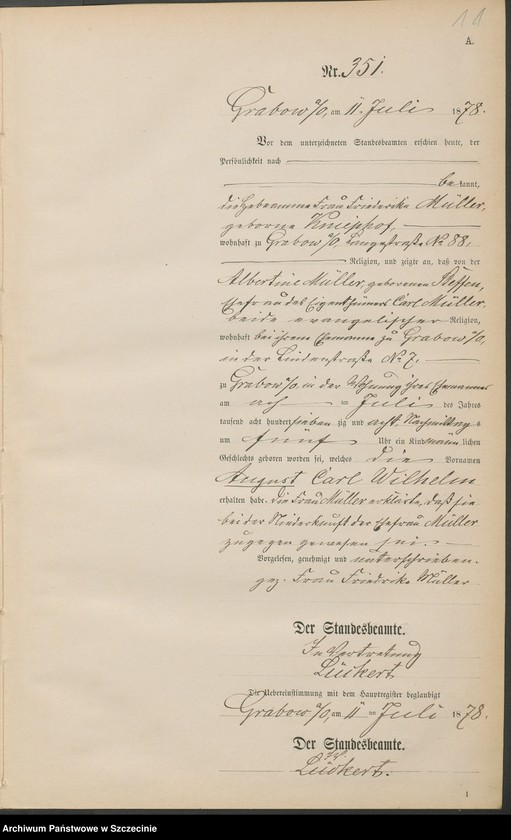 11
A.
Nr. 351.
Grabow a/O, am 11. Juli 1878.
Vor dem unterzeichneten Standesbeamten erschien heute, der
Persönlichkeit nach
bekannt,
die Hebeamme Frau Friederike Müller,
geborene Kniephof,
wohnhaft zu Grabow a/O, Langestraße No 88.
Religion, und zeigte an, daß von der
Albertine Müller, geborenen Steffen,
Ehefrau des Eigenthümers Carl Müller,
beide evangelischer Religion,
wohnhaft bei ihrem Ehemanne zu Grabow a/O,
in der Lindenstraße No 7.
zu Grabow a/O, in der Wohnung ihres Ehemannes
am Juli des Jahres
tausend acht hundert siebenzig und acht Nachmittags
um fünf Uhr ein Kind männlichen
Geschlechts geboren worden sei, welches die Vornamen
August Carl Wilhelm
erhalten habe. Die Frau Müller erklärte, daß sie
bei der Niederkunft der Ehefrau Müller
zugegen gewesen sei.
Vorgelesen, genehmigt und unterschrieben.
gez. Frau Friedrike Müller
Der Standesbeamte.
In Vertretung
Lückert
Die Uebereinstimmung mit dem Hauptregister beglaubigt
Grabow a/O, am 11 ten Juli 1878.
Der Standesbeamte.
Lückert.
1
Archiwum Państwowe w Szczecinie